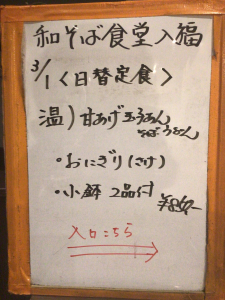 和そば食堂入福
3/1〈日替定食〉
温)甘あげ玉うどん
そばorうどん
・おにぎり(さけ)
・小鉢 2品付
¥850-
入口こちら